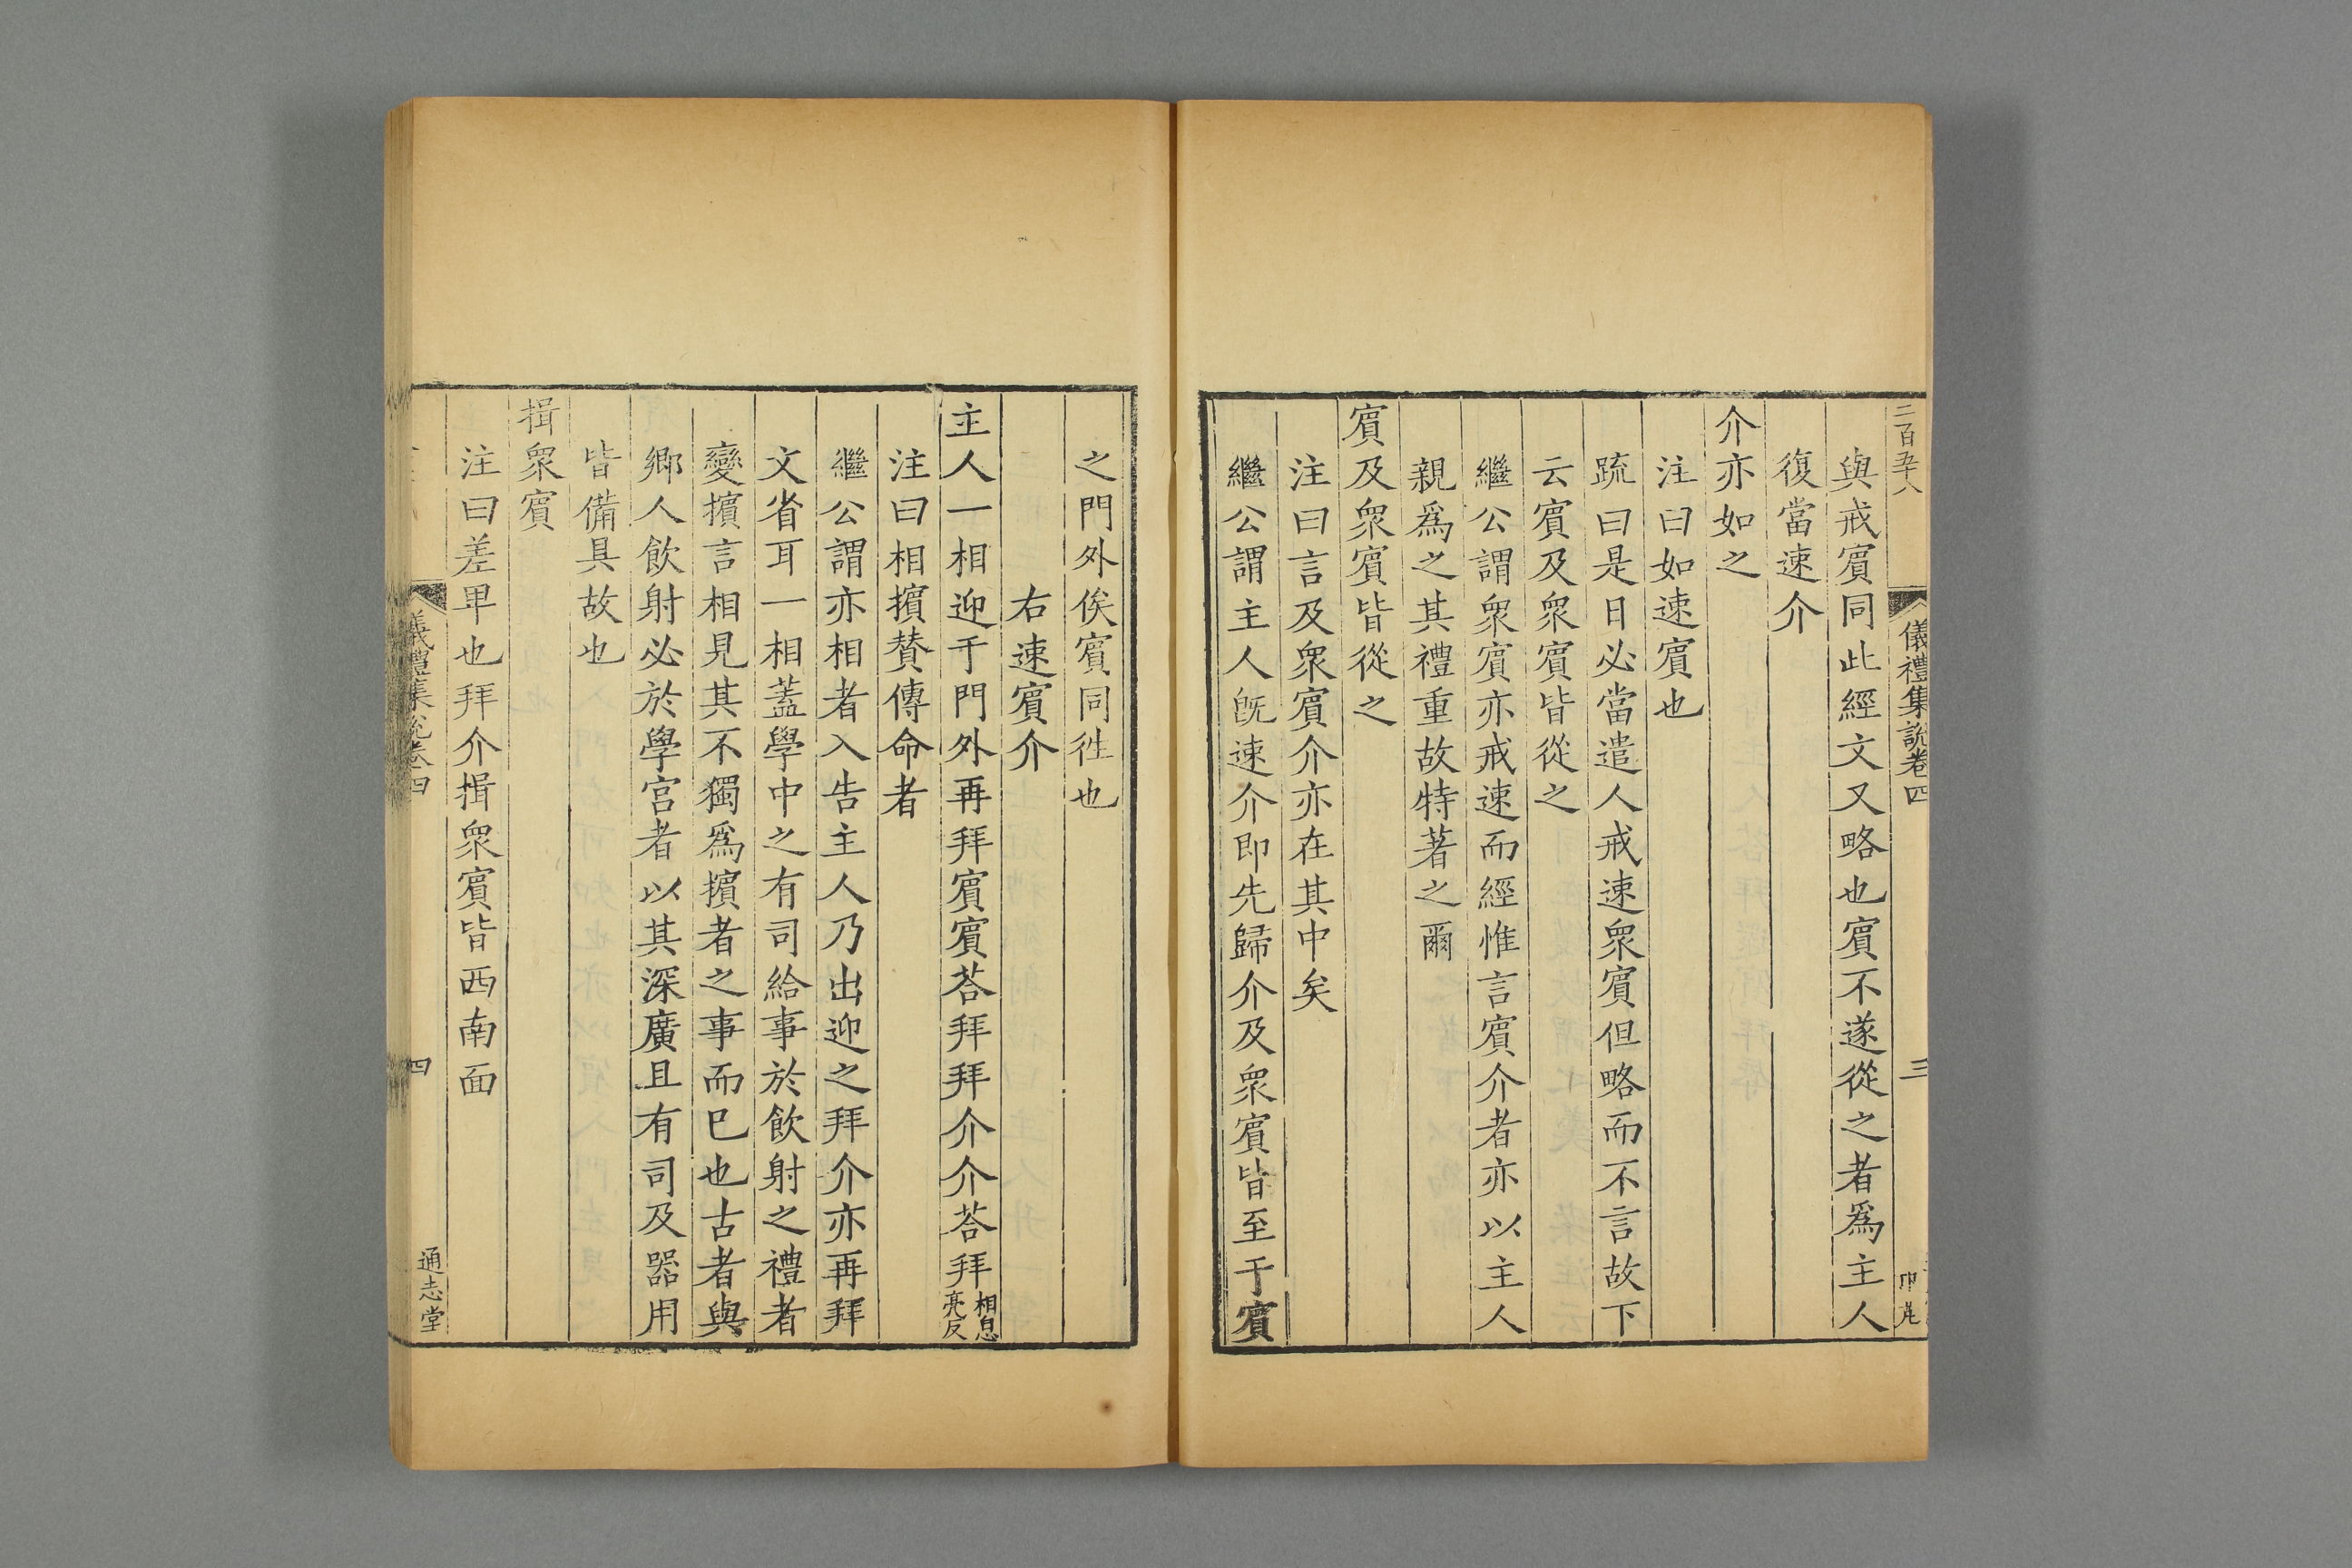 二百五十八
儀禮集說卷四
三
與戒賔同此經文又略也賔不遂從之者爲主人
復當速介
介亦如之
注曰如速賔也
疏曰是日必當遣人戒速衆賔但略而不言故下
云賔及衆賔皆從之
繼公謂衆賔亦戒速而經惟言賔介者亦以主人
親爲之其禮重故特著之爾
賔及衆賔皆從之
注曰言及衆賔介亦在其中矣
繼公謂主人旣速介即先歸介及衆賔皆至于賔
之門外俟賔同徃也
右速賔介
主人一相迎于門外再拜賔賔荅拜拜介介荅拜相息亮反
注曰相擯賛傳命者
繼公謂亦相者入告主人乃出迎之拜介亦再拜
文省耳一相蓋學中之有司給事於飲射之禮者
變擯言相見其不獨爲擯者之事而已也古者與
鄉人飲射必於學宮者以其深廣且有司及器用
皆備具故也
揖衆賔
注曰差卑也拜介揖衆賔皆西南面
儀禮集說卷四
四
通志堂